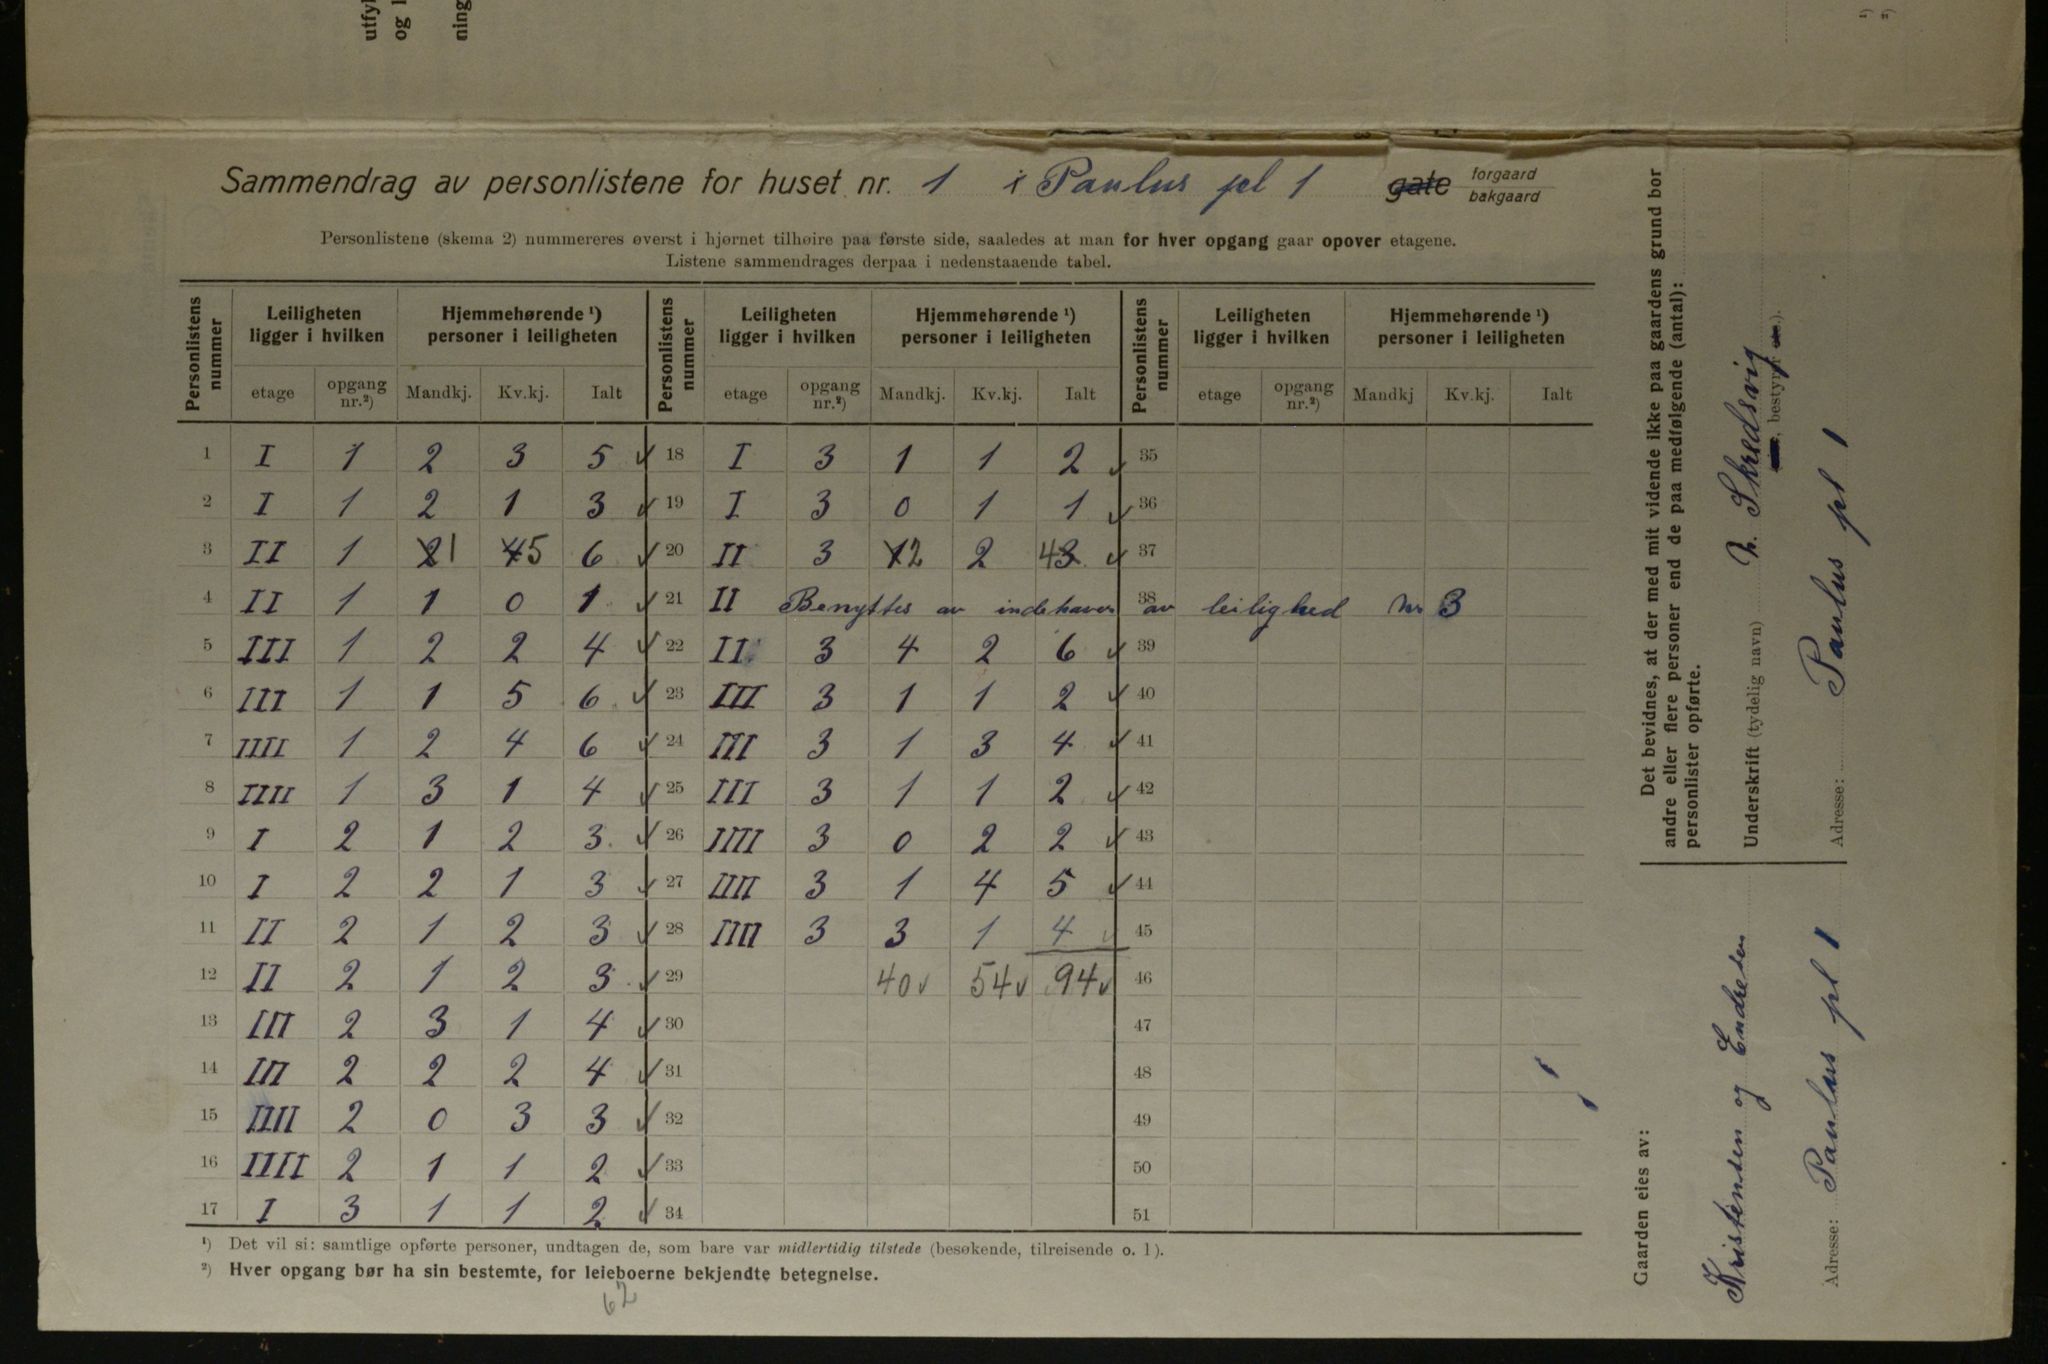 utfyl
og l
ning
¹)
²)
Sammendrag av personlistene for huset nr. 1 i Paulus pl 1 gate forgaard bakgaard
Personlistene (skema 2) nummereres øverst i hjørnet tilhøire paa første side, saaledes at man for hver opgang gaar opover etagene.
Listene sammendrages derpaa i nedenstaaende tabel.
Personlistens nummer | Leiligheten ligger i hvilken | Hjemmehørende ¹) personer i leiligheten | Personlistens nummer | Leiligheten ligger i hvilken | Hjemmehørende ¹) personer i leiligheten | Personlistens nummer | Leiligheten ligger i hvilken | Hjemmehørende ¹) personer i leiligheten
etage | opgang nr.²) | Mandkj. | Kv.kj. | Ialt | etage | opgang nr.²) | Mandkj. | Kv.kj. | Ialt | etage | opgang nr.²) | Mandkj | Kv.kj. | Ialt
1 I 1 2 3 5 ✓ 18 I 3 1 1 2 ✓ 35
2 I 1 2 1 3 ✓ 19 I 3 0 1 1 ✓ 36
3 II 1 2 1 4 5 6 ✓ 20 II 3 1 2 2 4 3 ✓ 37
4 II 1 1 0 1 ✓ 21 II Benyttes av indehaver 38 av leilighed Nr 3
5 III 1 2 2 4 ✓ 22 II 3 4 2 6 ✓ 39
6 III 1 1 5 6 ✓ 23 III 3 1 1 2 ✓ 40
7 IIII 1 2 4 6 ✓ 24 III 3 1 3 4 ✓ 41
8 IIII 1 3 1 4 ✓ 25 III 3 1 1 2 ✓ 42
9 I 2 1 2 3 ✓ 26 IIII 3 0 2 2 ✓ 43
10 I 2 2 1 3 ✓ 27 IIII 3 1 4 5 ✓ 44
11 II 2 1 2 3 ✓ 28 IIII 3 3 1 4 ✓ 45
12 II 2 1 2 3 ✓ 29 40 ✓ 54 ✓ 94 ✓ 46
13 III 2 3 1 4 ✓ 30 47
14 III 2 2 2 4 ✓ 31 48
15 IIII 2 0 3 3 ✓ 32 49
16 IIII 2 1 1 2 ✓ 33 50
17 I 3 1 1 2 ✓ 34 51
¹) Det vil si: samtlige opførte personer, undtagen de, som bare var midlertidig tilstede (besøkende, tilreisende o. l).
²) Hver opgang bør ha sin bestemte, for leieboerne bekjendte betegnelse.
62
Det bevidnes, at der med mit vidende ikke paa gaardens grund bor
andre eller flere personer end de paa medfølgende (antal):
personlister opførte.
Underskrift (tydelig navn) N. Skredsvig
, bestyrer
Adresse: Paulus pl 1
Gaarden eies av:
Kristensen og Endresen
Adresse: Paulus pl 1